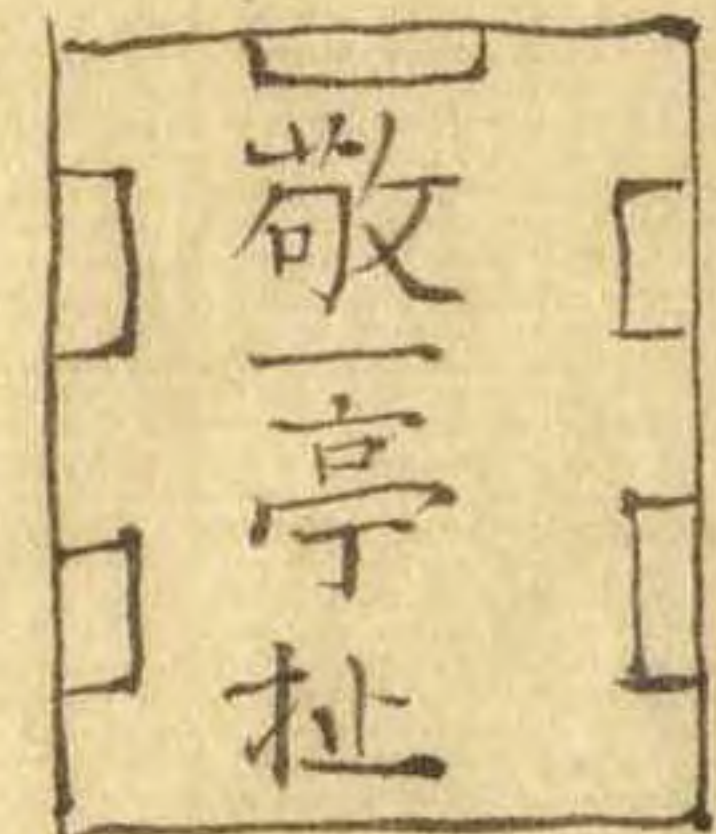 敬一亭址